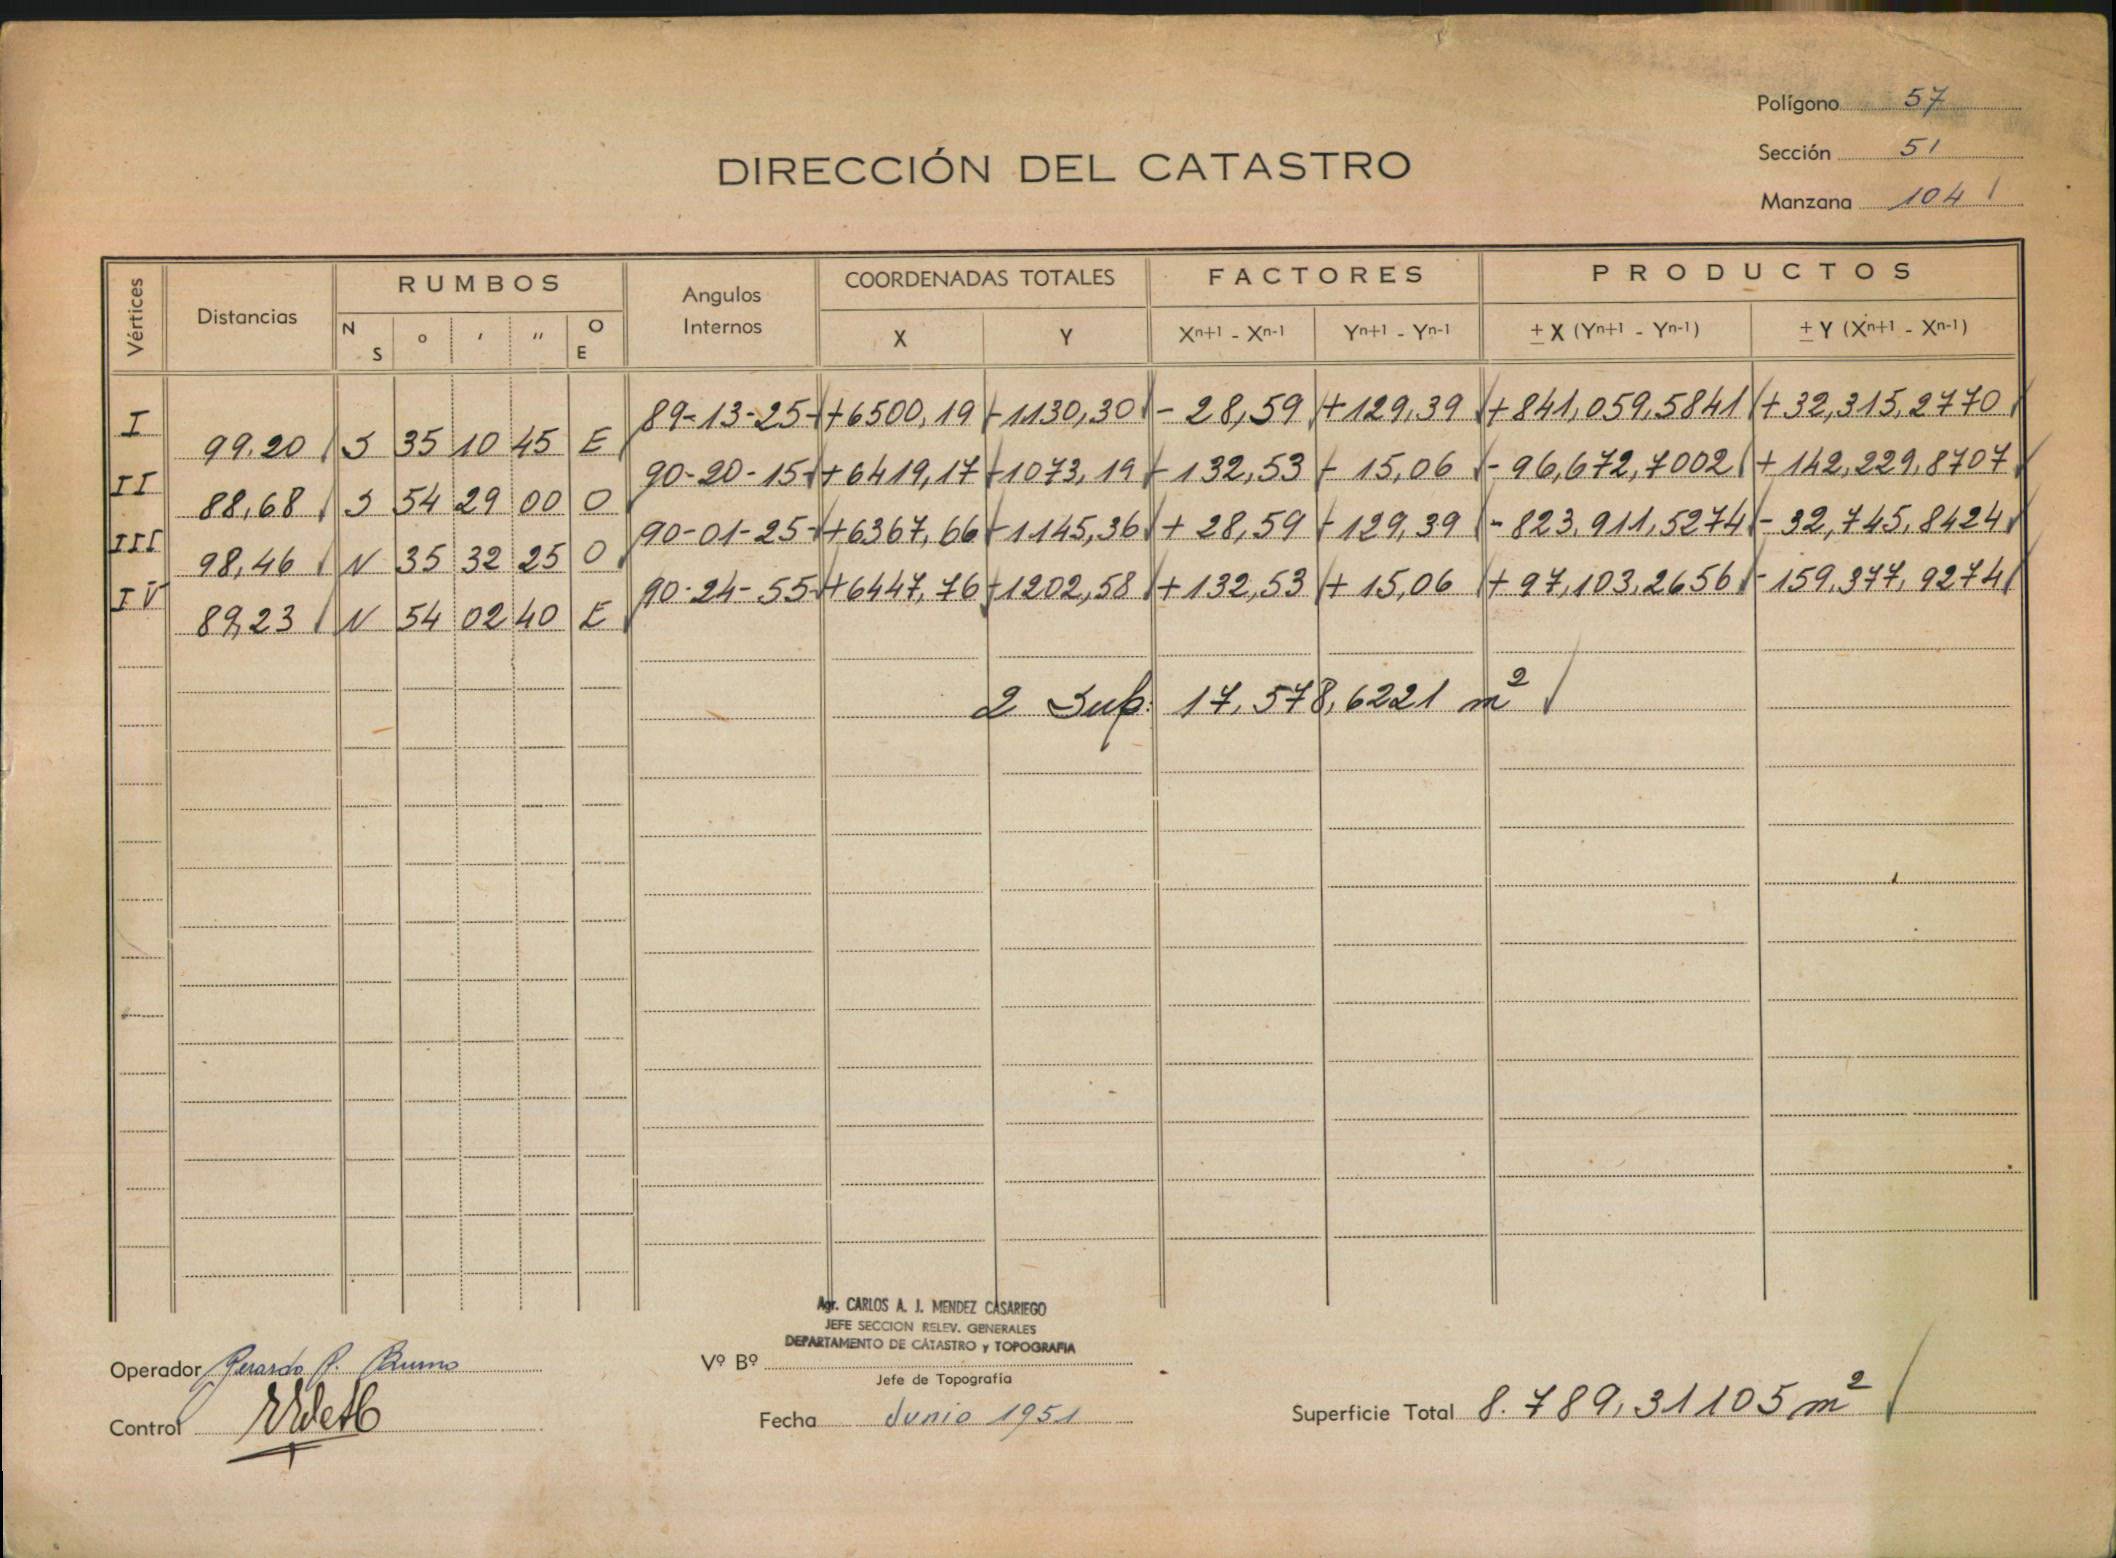 Polígono 57
Sección 51
Manzana 104
DIRECCIÓN DEL CATASTRO
Vértices Distancias RUMBOS Angulos Internos COORDENADAS TOTALES FACTORES PRODUCTOS
N S ° ' " O E X Y Xn+1 - Xn-1 Yn+1 - Yn-1 ± X (Yn+1 - Yn-1) ± Y (Xn+1 - Xn-1)
I 89-13-25 +6500,19 -1130,30 - 28,59 +129,39 +841,059,5841 +32,315,2770
99,20 S 35 10 45 E
II 90-20-15 +6419,17 -1073,19 -132,53 - 15,06 -96,672,7002 +142,229,8707
88,68 S 54 29 00 O
III 90-01-25 +6367,66 -1145,36 + 28,59 -129,39 -823,911,5274 -32,745,8424
98,46 N 35 32 25 O
IV 90-24-55 +6447,76 -1202,58 +132,53 + 15,06 +97,103,2656 -159,377,9274
89,23 N 54 02 40 E
2 Sup. 17,578,6221 m²
Agr. CARLOS A. J. MENDEZ CASARIEGO
JEFE SECCION RELEV. GENERALES
DEPARTAMENTO DE CATASTRO y TOPOGRAFIA
Operador Gerardo P. Bruno
Vº Bº
Jefe de Topografía
Control
Fecha Junio 1951
Superficie Total 8.789,31105 m²